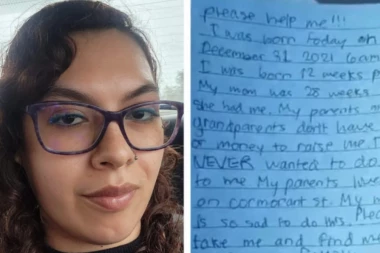 please help me!!!
I was born today on
December 31 2021 6am
I was born 12 weeks p
My mom was 28 weeks
she had me. My parents an
grandparents don't have
or money to raise me T
NEVER wanted to do
to me My parents live
on cormorant st. My m
is so sad to do this. Plea
take me and find me